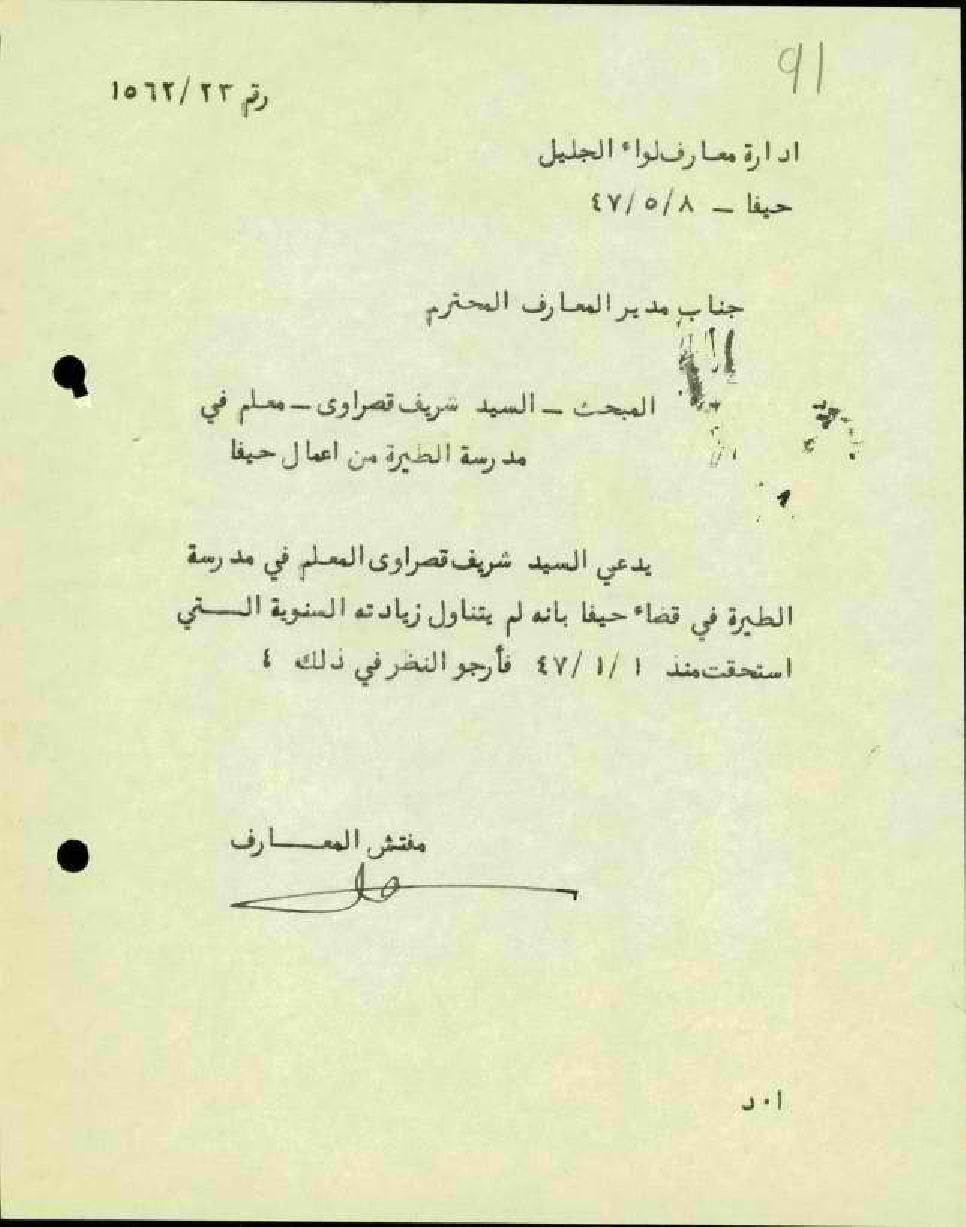 91
رقم ٢٣/ ١٥٦٢
ادارة معارف لواء الجليل
حيفا ـ ٨/ ٥/ ٤٧
جناب مدير المعارف المحترم
المبحث ـ السيد شريف قصراوى ـ معلم في
مدرسة الطيرة من اعمال حيفا
يدعي السيد شريف قصراوى المعلم في مدرسة
الطيرة في قضاء حيفا بانه لم يتناول زيادته السنوية الـــتي
استحقت منذ ١ /١ /٤٧ فأرجو النظر في ذلك ٤
مفتش المعـــارف
ا٠د